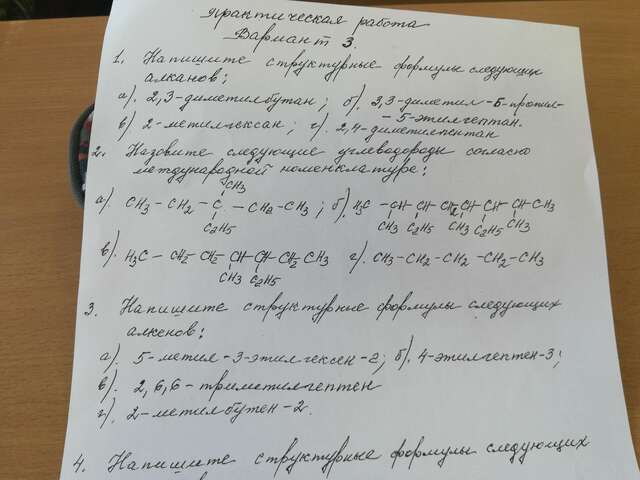 Практическая работа
Вариант 3.
1. Напишите структурные формулы следующих
алканов:
а). 2,3-диметилбутан; б). 3,3-диметил-5-пропил-
-5-этилгептан.
в). 2-метилгексан; г). 2,4-диметилпентан
2. Назовите следующие углеводороды согласно
международной номенклатуре:
CH3
а). CH3 - CH2 - C - CH2 - CH3; б). H3C - CH-CH-CH2-CH-CH-CH-CH3
C2H5 CH3 C2H5 CH3 C2H5 CH3
в). H3C - CH2 - CH2-CH-CH-CH2-CH3 г). CH3-CH2-CH2-CH2-CH3
CH3 C2H5
3. Напишите структурные формулы следующих
алкенов:
а). 5-метил-3-этилгексен-2; б). 4-этилгептен-3;
в). 2,6,6-триметилгептен
г). 2-метилбутен-2.
4. Напишите структурные формулы следующих